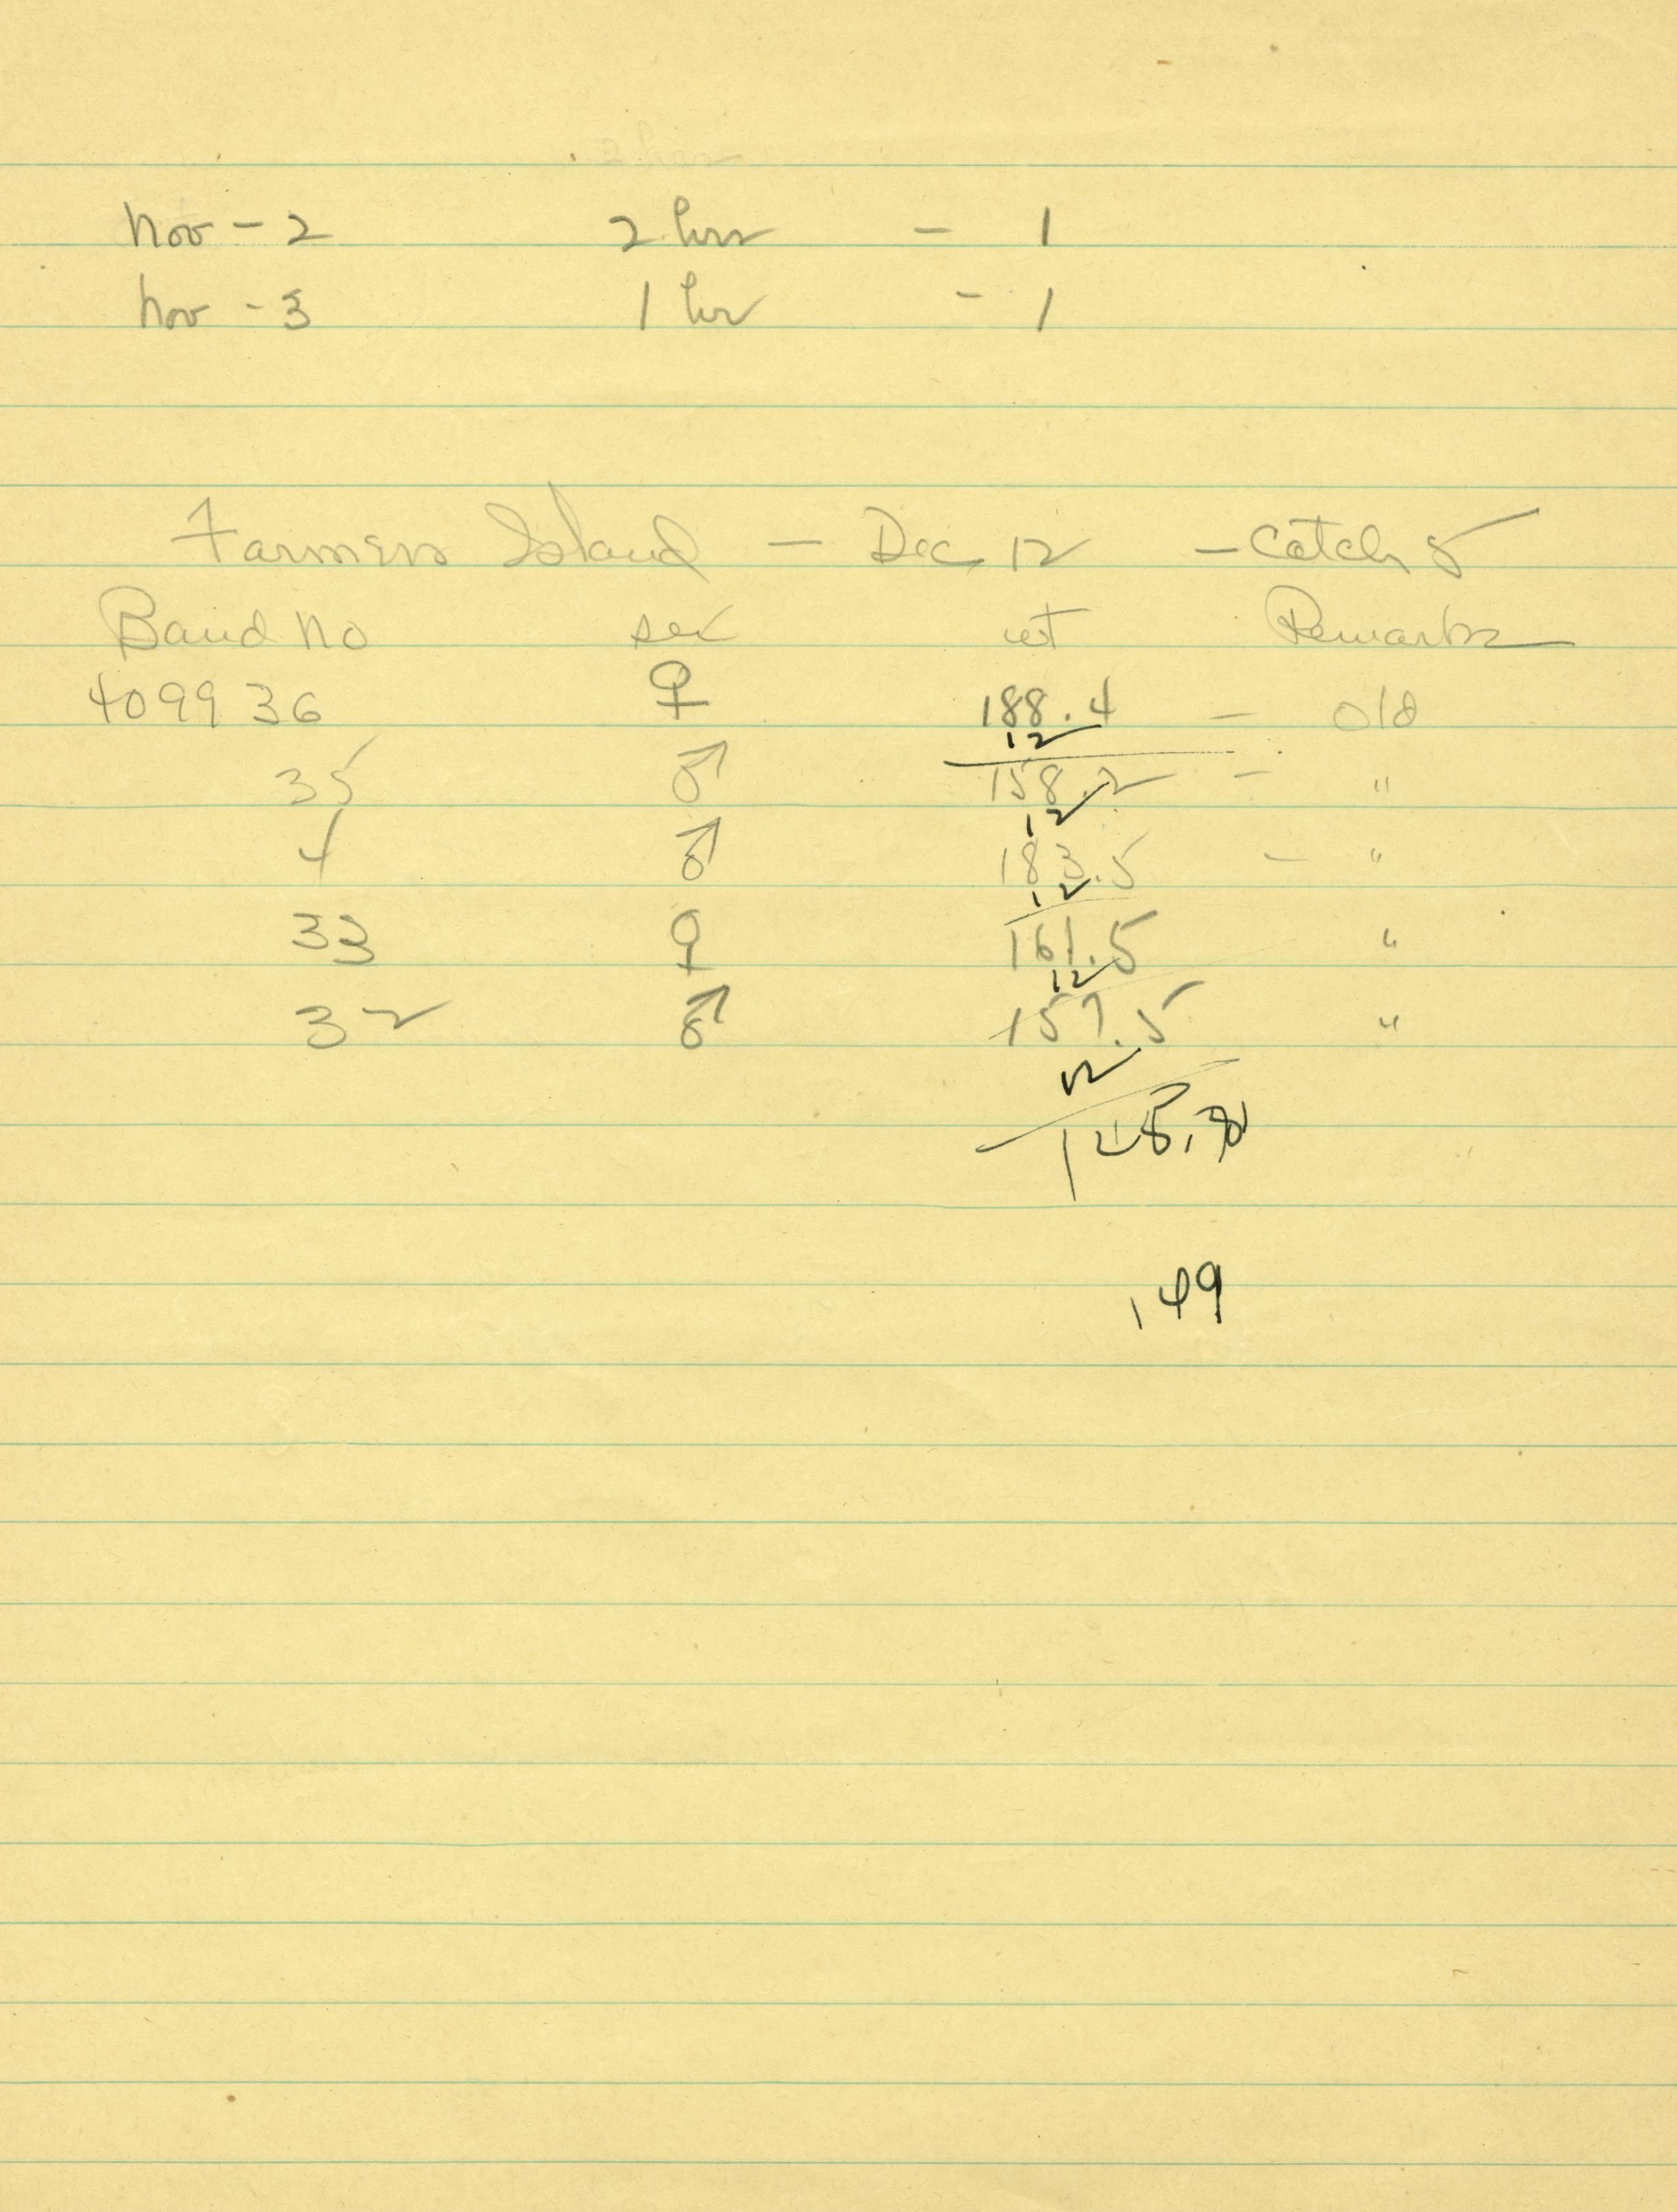 Nov - 2 2 hrs - 1
Nov - 3 1 hr - 1
Farmers Island - Dec 12 - Catch 5
Band No sex wt Remarks
409936 ♀ 188.4 - old
12
35 ♂ 158.2 - "
12
4 ♂ 183.5 - "
12
33 ♀ 161.5 "
12
32 ♂ 157.5 "
12
149